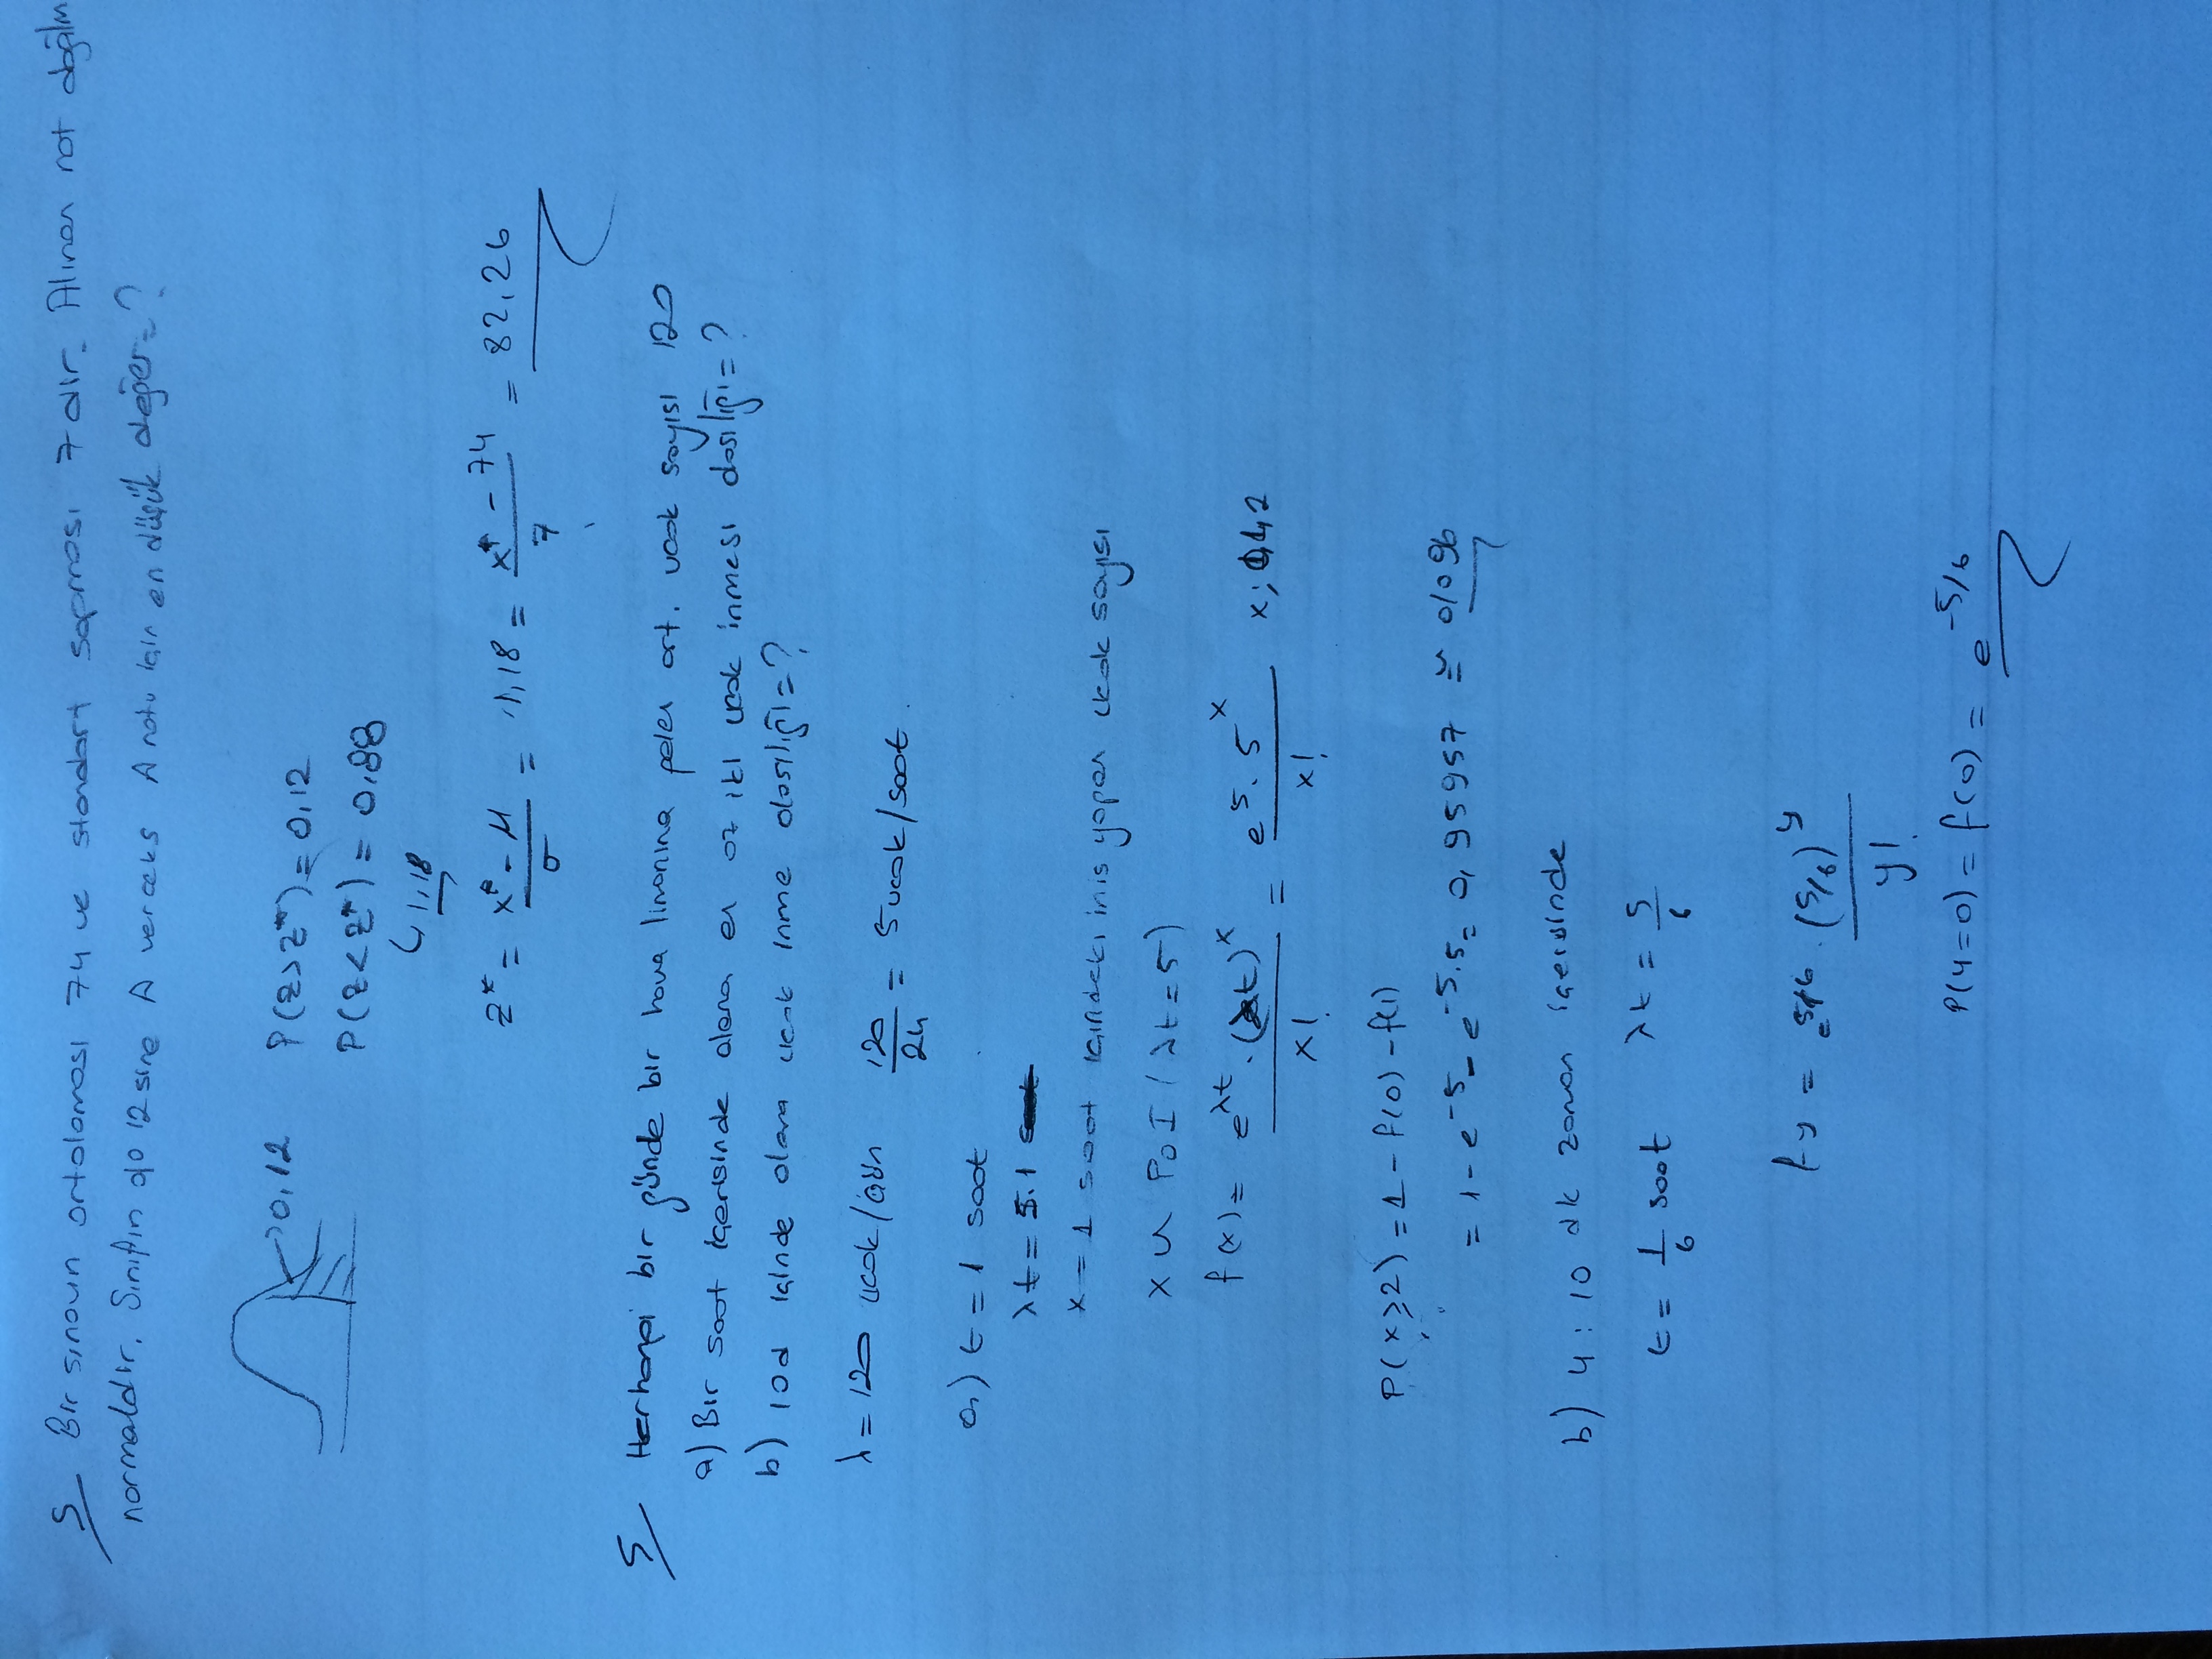 S Bir sınavın ortalaması 74 ve standart sapması 7 dir. Alınan not dağılım
normaldir. Sınıfın %12 sine A verecek A notu için en düşük değer=?
0,12 P(z>z*)=0,12
P(z<z*)=0,88
1,18
z* = x*-μ / σ = 1,18 = x*-74 / 7 = 82,26
S Herhangi bir günde bir hava limanına gelen ort. ucak sayısı 120
a) Bir saat içerisinde alana en az iki ucak inmesi olasılığı=?
b) 10d içinde alana ucak inme olasılığı=?
λ = 120 ucak/gün 120/24 = 5 ucak/saat.
a) t = 1 saat
λt = 5.1
x = 1 saat içindeki iniş yapan ucak sayısı
x ~ POI (λt=5)
f(x) = e^λt . (λt)^x / x! = e^5 . 5^x / x! x; 0,1,2
P(x≥2) = 1 - f(0) - f(1)
= 1 - e^-5 - e^-5.5 = 0,95957 ≅ 0/096
b) 4: 10 dk zaman içerisinde
t = 1/6 saat λt = 5/6
fy = e^5/6 . (5/6)^y / y!
P(y=0) = f(0) = e^-5/6